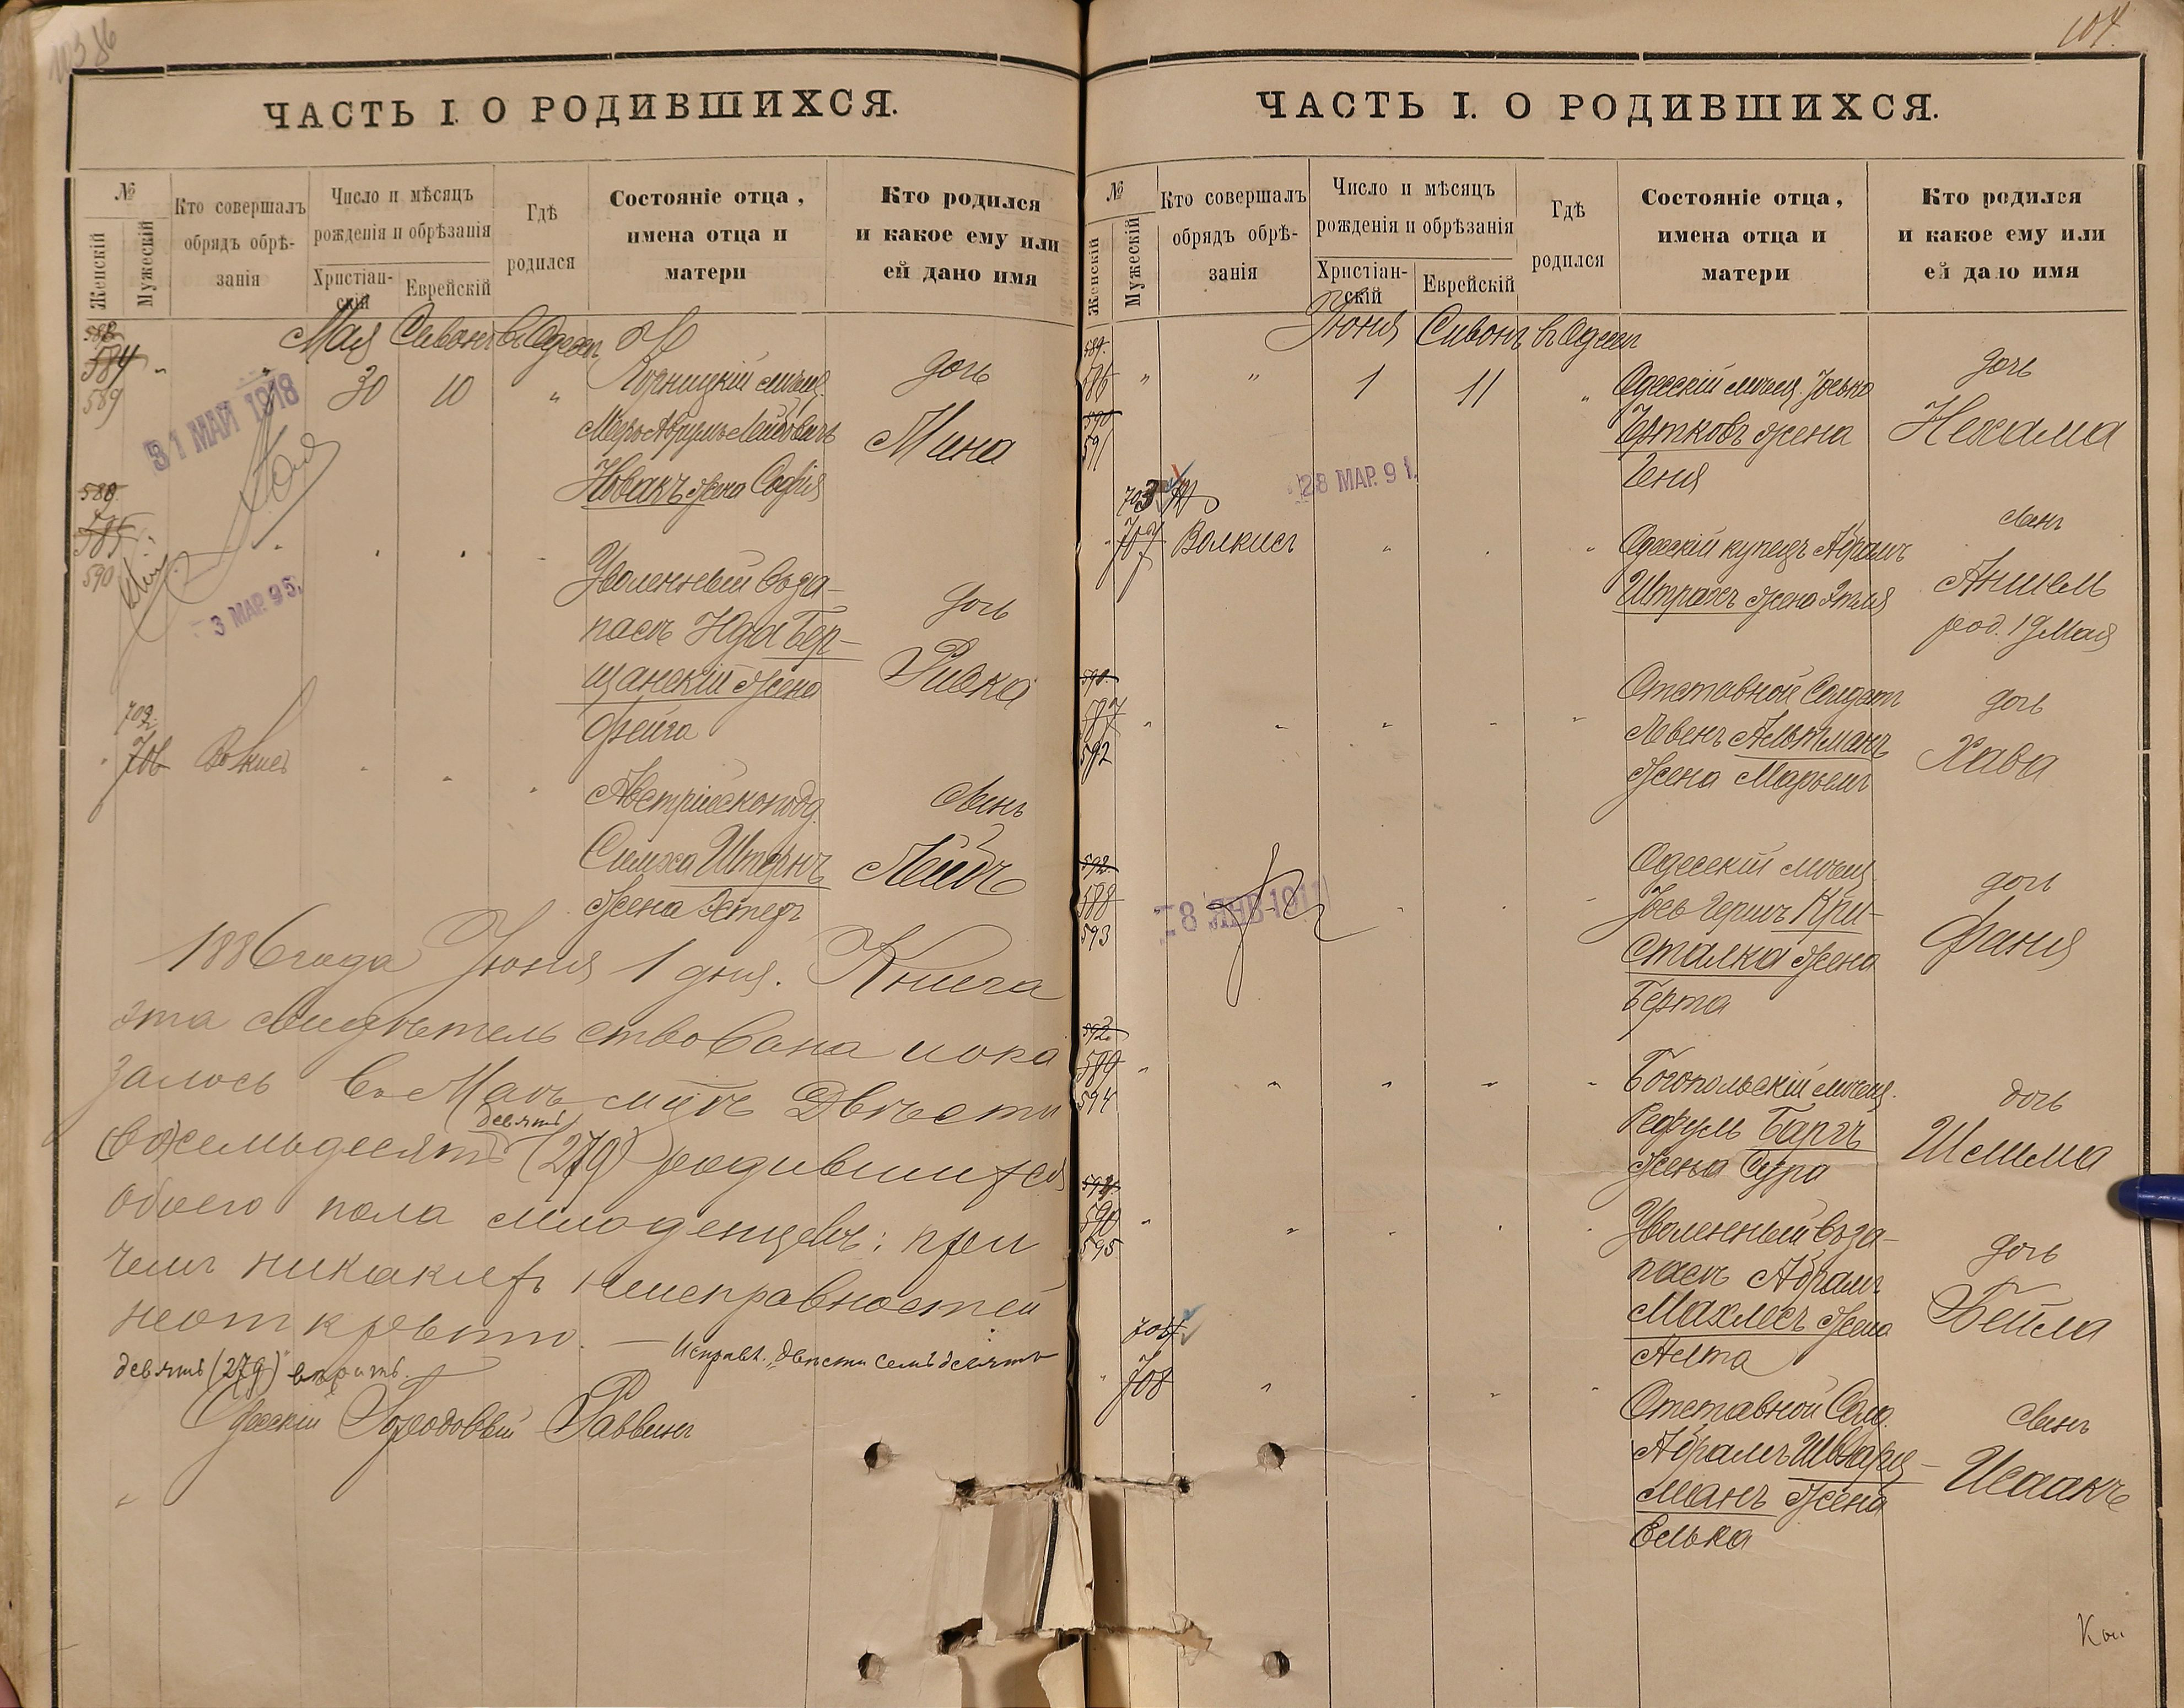 104.
ЧАСТЬ I. О РОДИВШИХСЯ.
№
Женскій
Мужескій
Кто совершалъ
обрядъ обрѣ-
занія
Число и мѣсяцъ
рожденія и обрѣзанія
Христіан-
скій
Еврейскій
Гдѣ
родился
Состояніе отца,
имена отца и
матери
Кто родился
и какое ему или
ей дано имя
Мая Сивонъ въ Одессѣ
584
589
30 10
дочь
Мееръ Абрумъ Лейбовичъ
Новакъ жена Софія
Мина
31 МАЙ 1918
588
585
590
3 МАР. 95.
Уволенный въ за-
пасъ Юда Бер-
щанскій жена
Фейга
дочь
Ривка
702
706
Волкисъ
Австрійскоподд.
Симха Штернъ
жена Эстеръ
сынъ
Лейбъ
1886 года Іюня 1 дня. Книга
эта свидѣтельствована и ока
залось въ Маѣ м-цѣ Двѣсти
семьдесятъ девять (279) родившихся
обоего пола младенцевъ; при
чемъ никакихъ неисправностей
не открыто. — Исправл. "двѣсти семьдесятъ
девять (279)" вѣрить.
Одесскій Городовый Раввинъ
ЧАСТЬ I. О РОДИВШИХСЯ.
№
Женскій
Мужескій
Кто совершалъ
обрядъ обрѣ-
занія
Число и мѣсяцъ
рожденія и обрѣзанія
Христіан-
скій
Еврейскій
Гдѣ
родился
Состояніе отца,
имена отца и
матери
Кто родился
и какое ему или
ей дано имя
Іюня Сивонъ въ Одессѣ
589
586
590
591
1 11
Одесскій мѣщ. Іосько
Цѣтковъ жена
Геня
дочь
Нехама
28 МАР. 91.
703
707
Волкисъ
Одесскій купецъ Абрамъ
Штрахъ жена Этля
сынъ
Аншель
род. 19 Мая
587
592
Отставной Солдатъ
Левенъ Альтманъ
жена Марьемъ
дочь
Хава
592
588
593
Одесскій мѣщ.
Іось Гершъ Кри-
сталка жена
Берта
дочь
Фаня
589
594
Богопольскій мѣщ.
Рефуль Баргъ
жена Сура
дочь
Шлима
594
590
595
Уволенный въ за-
пасъ Абрамъ
Махлесъ жена
Алта
дочь
Бейла
704
708
Отставной Солд.
Абрамъ Шварц-
манъ жена
Елька
сынъ
Исаакъ